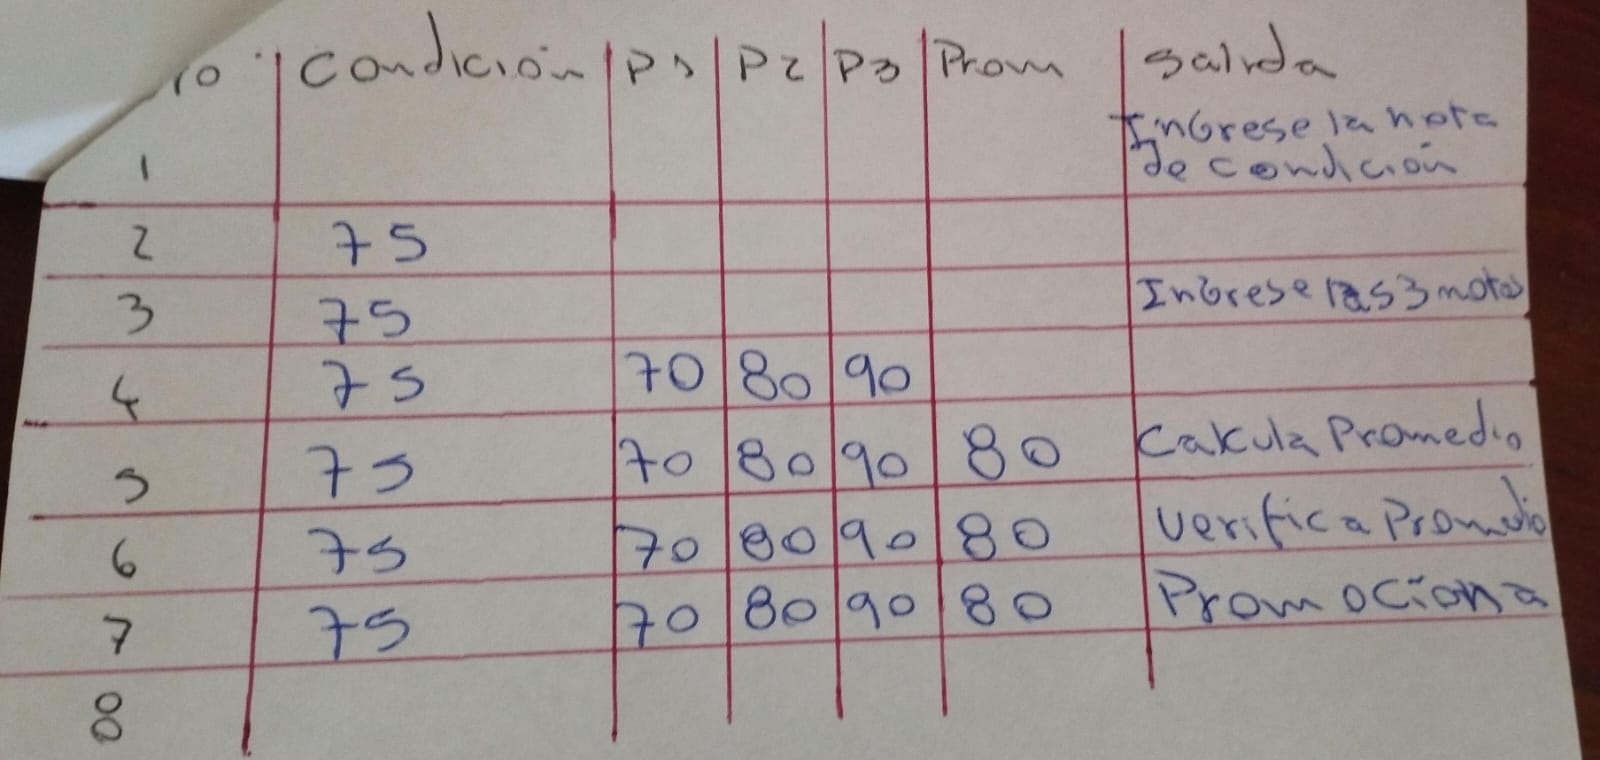 ro Condición P1 P2 P3 Prom Salida
1 Ingrese la nota
de condición
2 75
3 75 Ingrese las 3 notas
4 75 70 80 90
5 75 70 80 90 80 Calcula Promedio
6 75 70 80 90 80 Verifica Promedio
7 75 70 80 90 80 Promociona
8